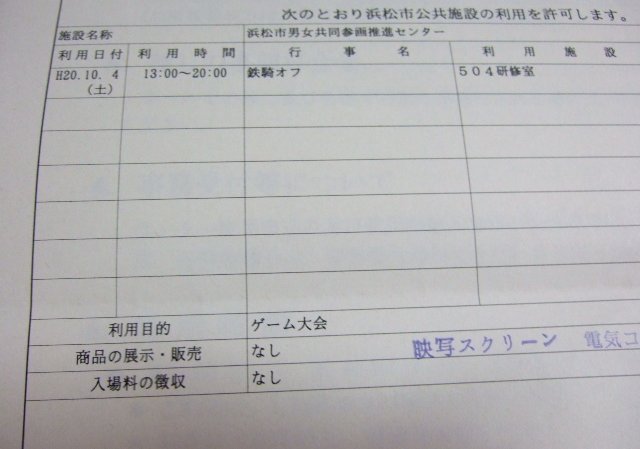 次のとおり浜松市公共施設の利用を許可します。
施設名称 浜松市男女共同参画推進センター
利用日付 利用時間 行事名 利用施設
H20.10. 4 13:00～20:00 鉄騎オフ 504研修室
(土)
利用目的 ゲーム大会
商品の展示・販売 なし
映写スクリーン 電気コ
入場料の徴収 なし